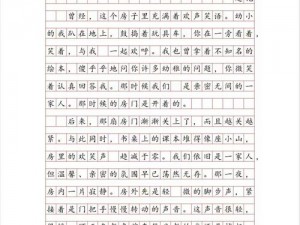 曾经，这个房子里充满着欢声笑语，幼小
的我趴在地上，鼓捣着玩具车，你在一旁看着
笑着，与我一起欢呼。我也曾拿着不知名的
绘本，傻乎乎地问你许多幼稚的问题，你微笑
着认真回答我。那时候我们 是亲密无间的一
家人。那时候的房门是开着的。
后来，那扇房门渐渐关上了，而且越关越
紧。与此同时，书桌上的课本堆得像座小山，
房里的欢笑声 越减于零。我们依旧是一家人，
但温馨、亲密的氛围早荡然无存了。那一夜，
房内一片寂静。房外先是轻 微的脚步声，紧
接着是门把手慢慢转动的声音。这声音很轻，